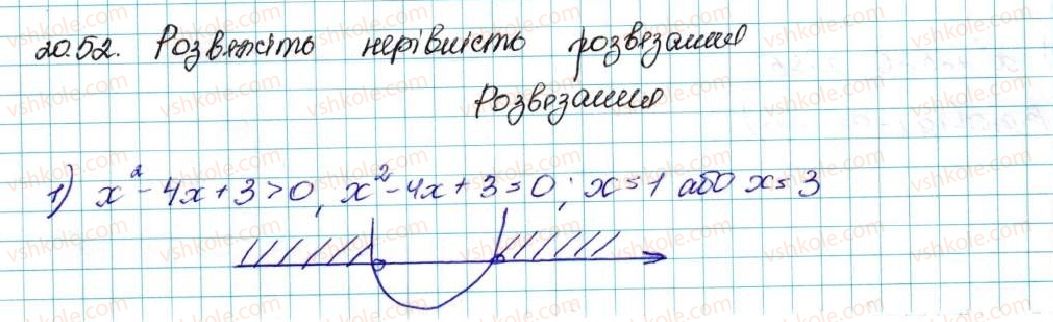 20.52. Розвяжіть нерівність розвязання
Розвязання
1) x² - 4x + 3 > 0, x² - 4x + 3 = 0; x = 1 або x = 3